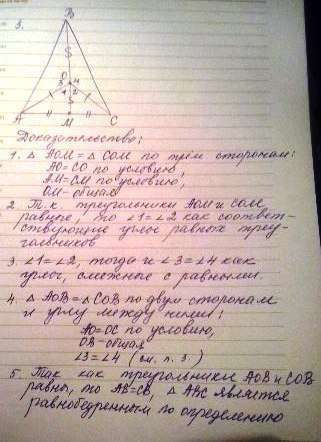 3.
B
O
3 4
1 2
A M C
Доказательство:
1. △ AOM = △ COM по трём сторонам:
AO=CO по условию,
AM=CM по условию,
OM-общая
2. Т.к треугольники AOM и COM
равны, то ∠1=∠2 как соответ-
ствующие углы равных треу-
гольников
3. ∠1=∠2, тогда и ∠3=∠4 как
углы, смежные с равными.
4. △ AOB=△COB по двум сторонам
и углу между ними:
AO=OC по условию,
OB-общая
∠3=∠4 (см. п. 3)
5. Так как треугольники AOB и COB
равны, то AB=CB, △ ABC является
равнобедренным по определению